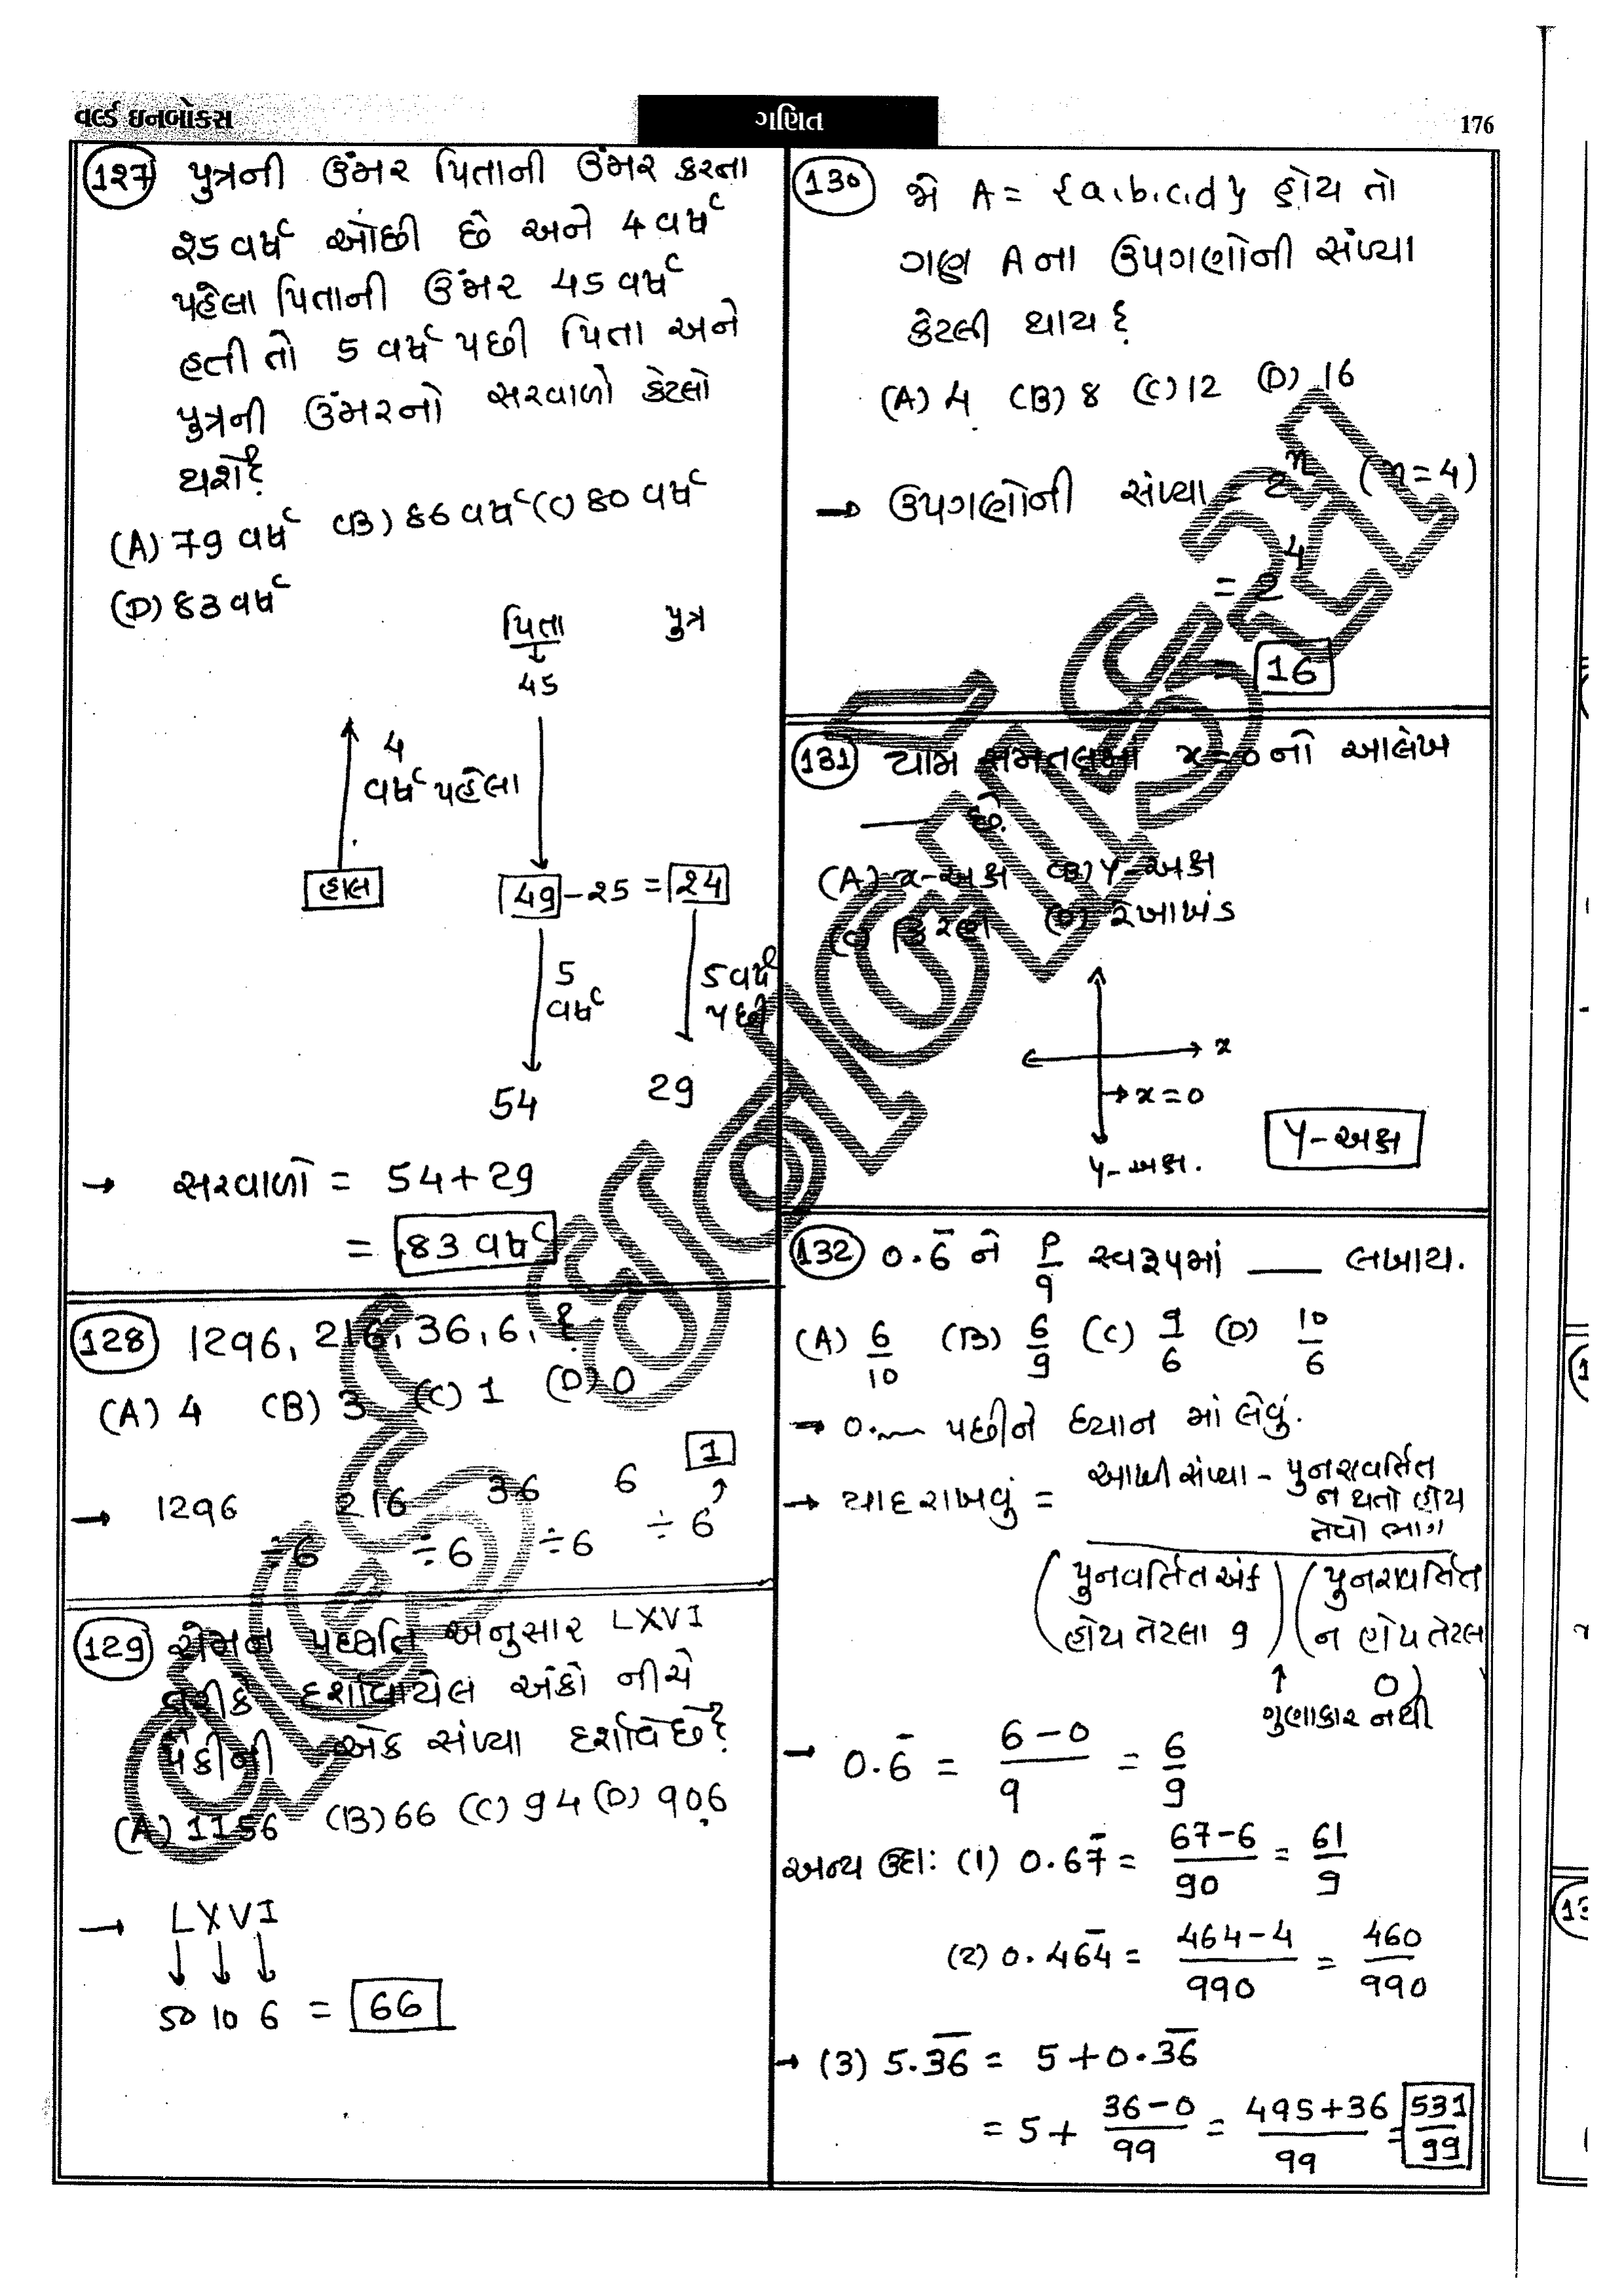 વર્લ્ડ ઇનબોક્સ
ગણિત
176
127 પુત્રની ઉંમર પિતાની ઉંમર કરતા
25 વર્ષ ઓછી છે અને 4 વર્ષ
પહેલા પિતાની ઉંમર 45 વર્ષ
હતી તો 5 વર્ષ પછી પિતા અને
પુત્રની ઉંમરનો સરવાળો કેટલો
થશે?
(A) 79 વર્ષ (B) 86 વર્ષ (C) 80 વર્ષ
(D) 83 વર્ષ
પિતા પુત્ર
45
4
વર્ષ પહેલા
હાલ 49 - 25 = 24
5 5 વર્ષ
વર્ષ પછી
54 29
→ સરવાળો = 54 + 29
= 83 વર્ષ
128 1296, 216, 36, 6, ?
(A) 4 (B) 3 (C) 1 (D) 0
→ 1296 216 36 6 1
÷6 ÷6 ÷6 ÷6
129 રોમન પધ્ધતિ અનુસાર LXVI
તરીકે દર્શાવાયેલ અંકો નીચે
પૈકીની એક સંખ્યા દર્શાવે છે?
(A) 1156 (B) 66 (C) 94 (D) 906
→ LXVI
50 10 6 = 66
130 જો A = {a,b,c,d} હોય તો
ગણ A ના ઉપગણોની સંખ્યા
કેટલી થાય?
(A) 4 (B) 8 (C) 12 (D) 16
→ ઉપગણોની સંખ્યા = 2ⁿ (n=4)
= 2⁴
= 16
131 યામ સમતલમાં x=0 નો આલેખ
___ છે.
(A) x-અક્ષ (B) Y-અક્ષ
(C) કિરણ (D) રેખાખંડ
x
→ x=0
y-અક્ષ.
Y-અક્ષ
132 0.6̄ ને P/q સ્વરૂપમાં ___ લખાય.
(A) 6/10 (B) 6/9 (C) 9/6 (D) 10/6
→ 0.~~ પછીને ધ્યાન માં લેવું.
→ યાદ રાખવું = આખી સંખ્યા - પુનરાવર્તિત
ન થતો હોય
તેવો ભાગ
(પુનવર્તિત અંક) (પુનરાવર્તિત
હોય તેટલા 9 ન હોય તેટલા
↑ 0)
ગુણાકાર નથી
→ 0.6̄ = 6-0/9 = 6/9
અન્ય ઉદા: (1) 0.67̄ = 67-6/90 = 61/9
(2) 0.46̄4̄ = 464-4/990 = 460/990
→ (3) 5.3̄6̄ = 5 + 0.3̄6̄
= 5 + 36-0/99 = 495+36/99 = 531/99